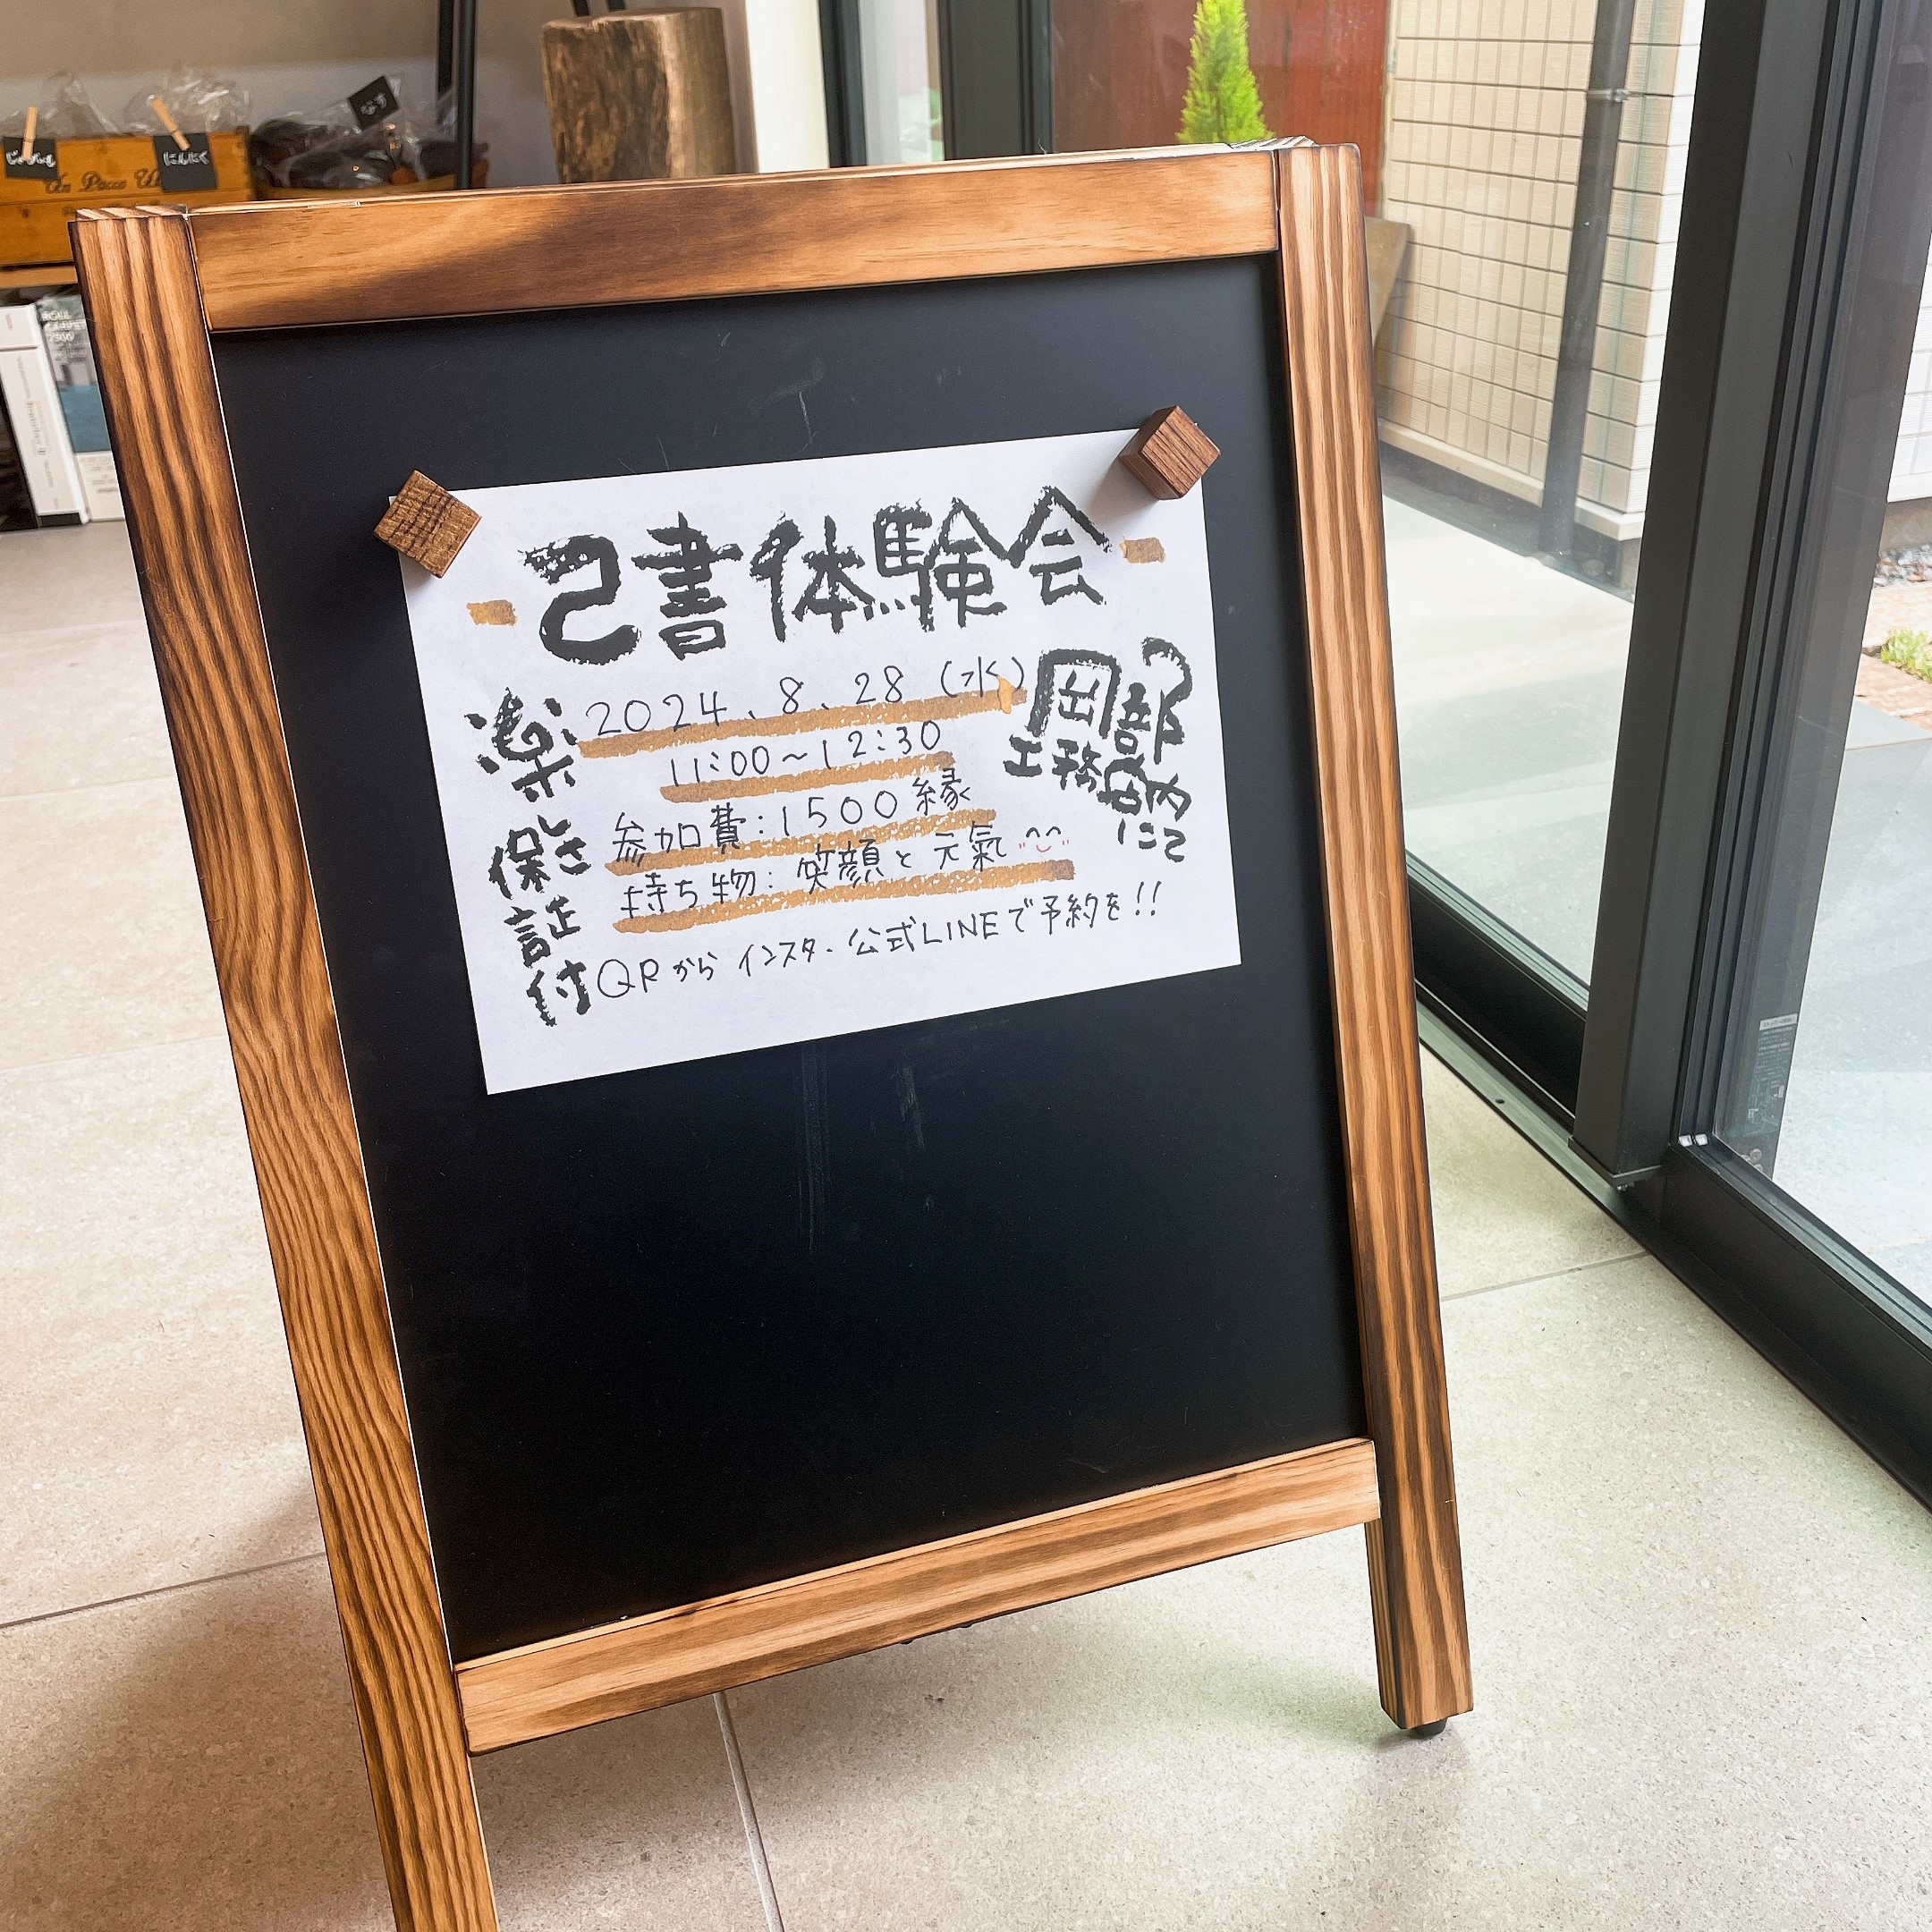 じゃがいも
にんにく
なす
己書体験会
2024、8、28（水）
11:00～12:30
参加費：1500縁
持ち物：笑顔と元氣
QRからインスタ・公式LINEで予約を!!
楽しさ保証付
岡部
工務店内
にて